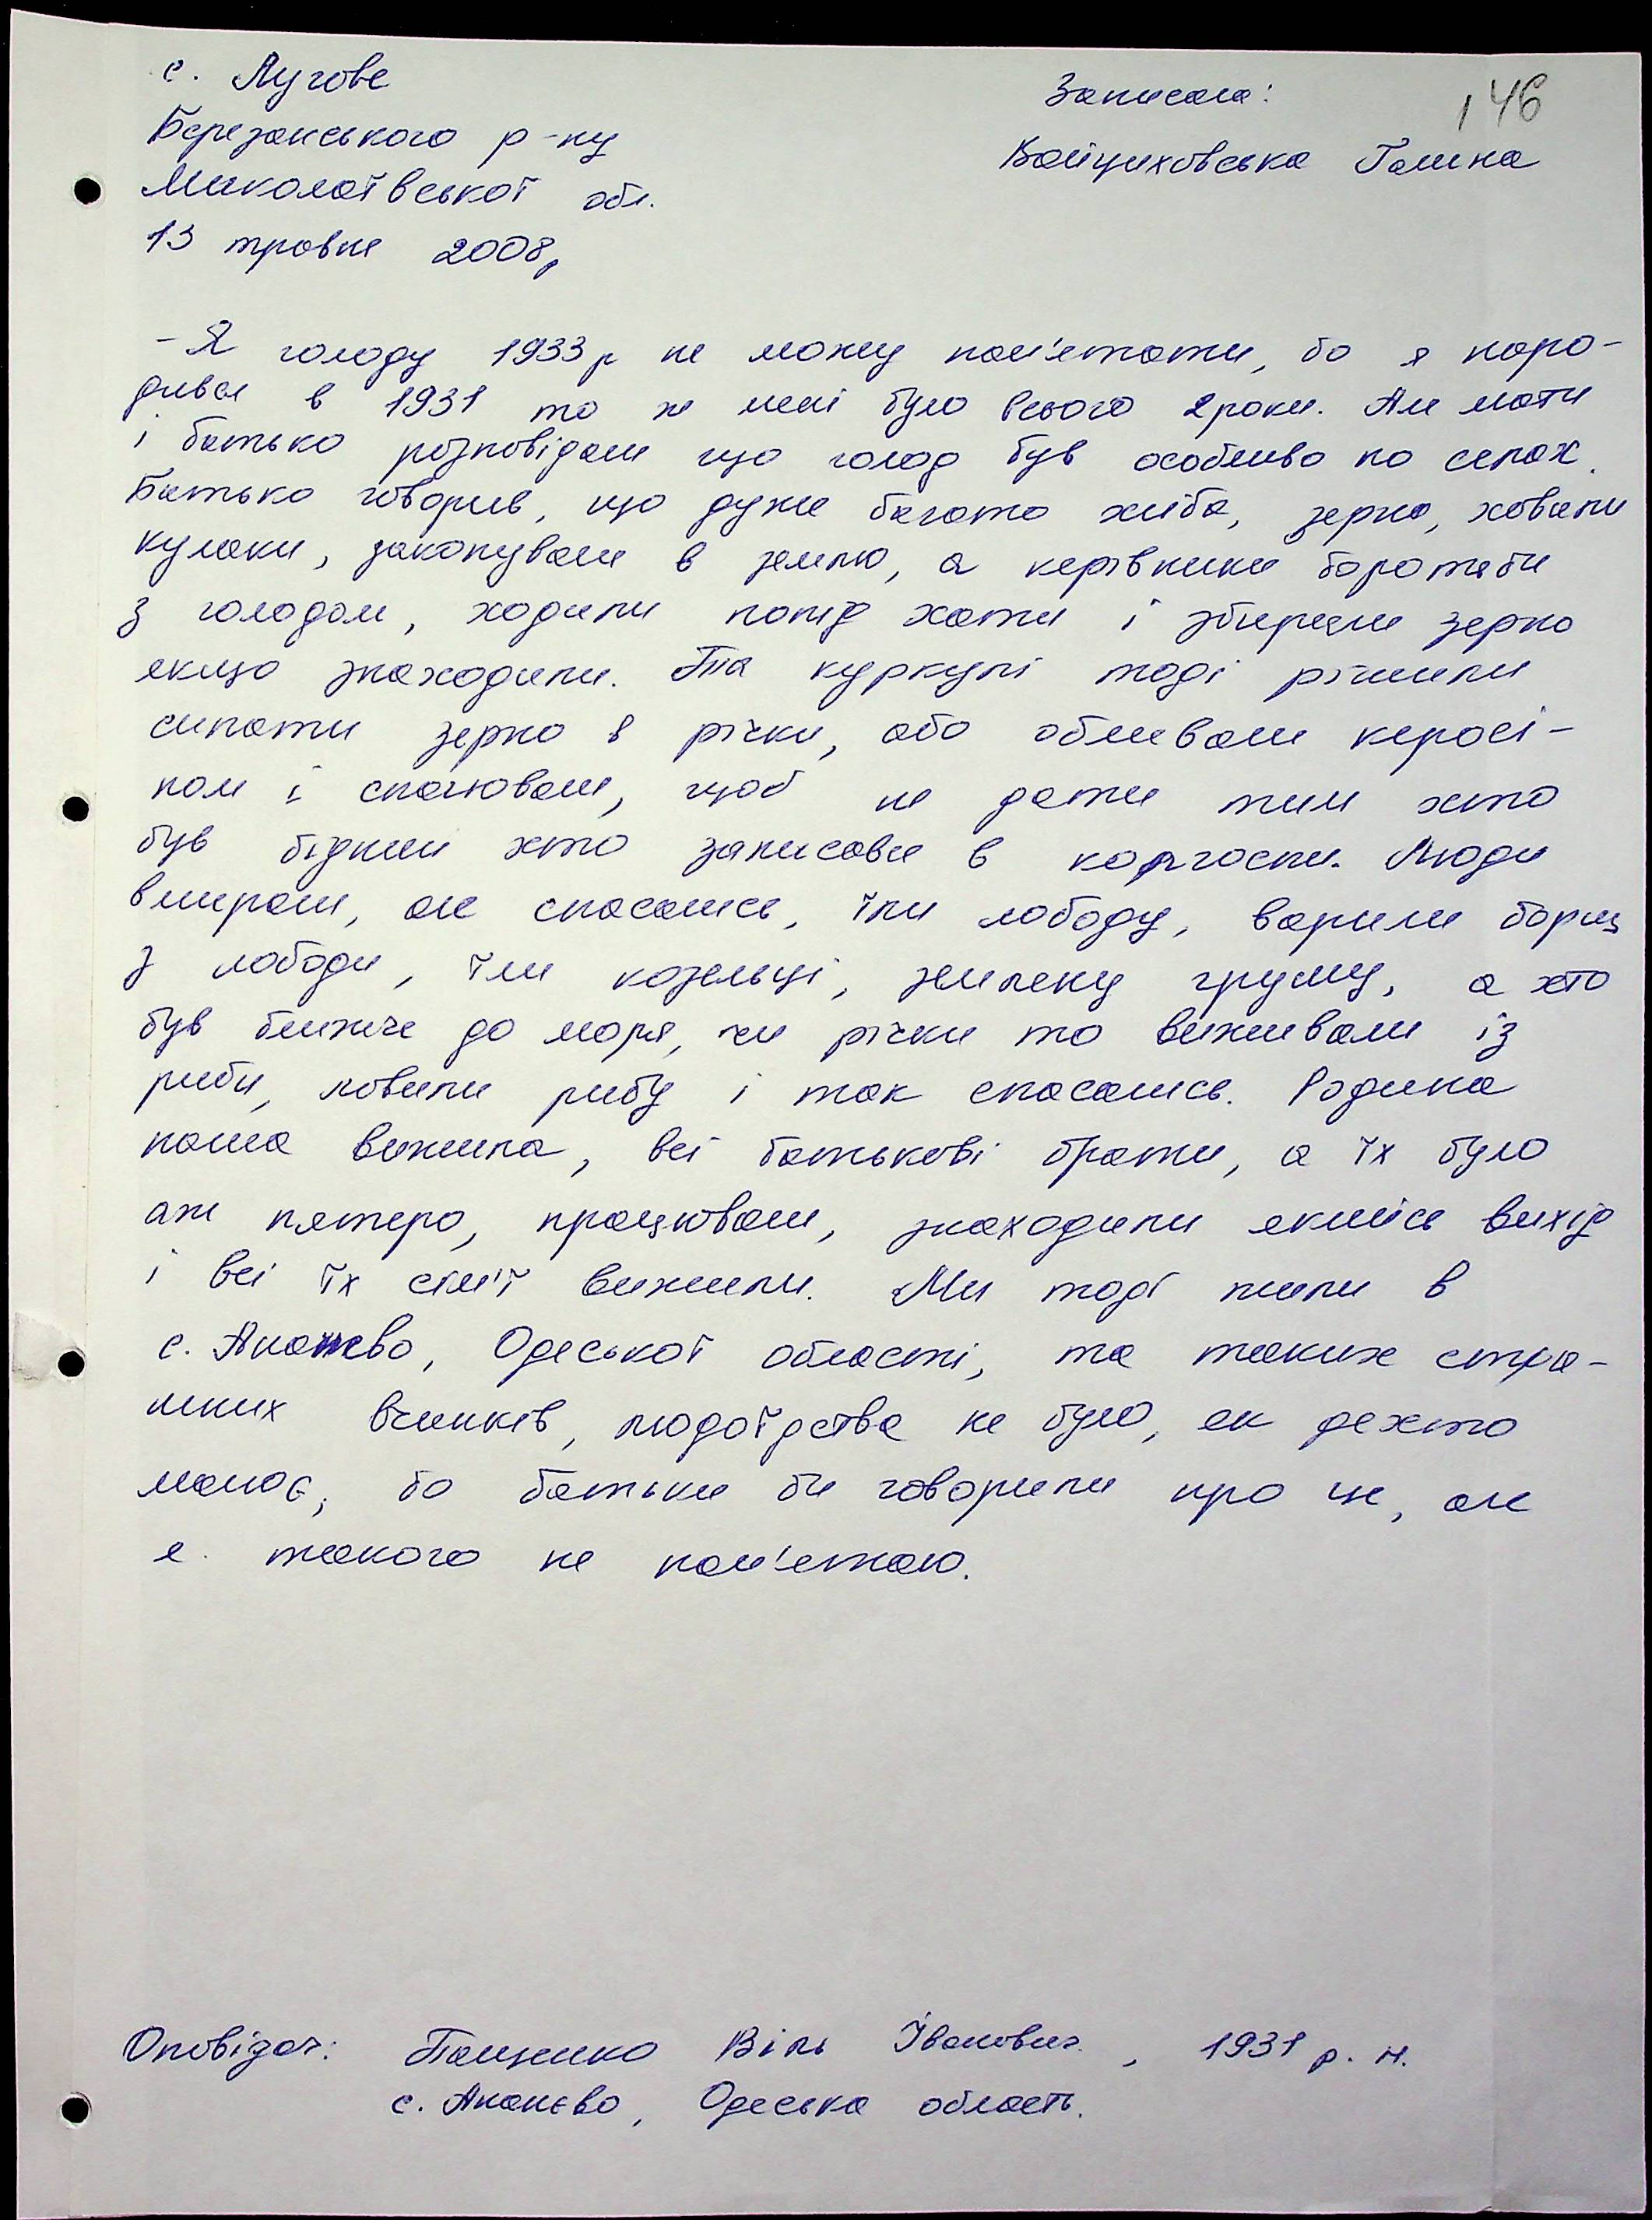 с. Лугове
Записала:
146
Березанського р-ну
Войциховська Галина
Миколаївської обл.
13 травня 2008р
- Я голоду 1933р не можу пам'ятати, бо я наро-
дився в 1931 то ж мені було всього 2 роки. Але мати
і батько розповідали що голод був особливо по селах.
Батько говорив, що дуже багато хліба, зерна, ховали
кулаки, закопували в землю, а керівники боротьби
з голодом, ходили попід хати і збирали зерно
якщо знаходили. Та куркулі тоді рішили
сипати зерно в річки, або обливали керосі-
ном і спалювали, щоб не дати тим хто
був бідним хто записався в колгоспи. Люди
вмирали, але спасались, їли лободу, варили борщ
з лободи, їли козельці, земляну грушу, а хто
був ближче до моря, чи річки то виживали із
риби, ловили рибу і так спасались. Родина
наша вижила, всі батькові брати, а їх було
аж пятеро, працювали, знаходили якийсь вихід
і всі їх сім'ї вижили. Ми тоді жили в
с. Ананьєво, Одеської області, та таких стра-
шних вчинків, людоїдства не було, як дехто
малює, бо батьки би говорили про це, але
я такого не пам'ятаю.
Оповідач: Пащенко Віль Іванович, 1931 р. н.
с. Ананьєво, Одеська область.